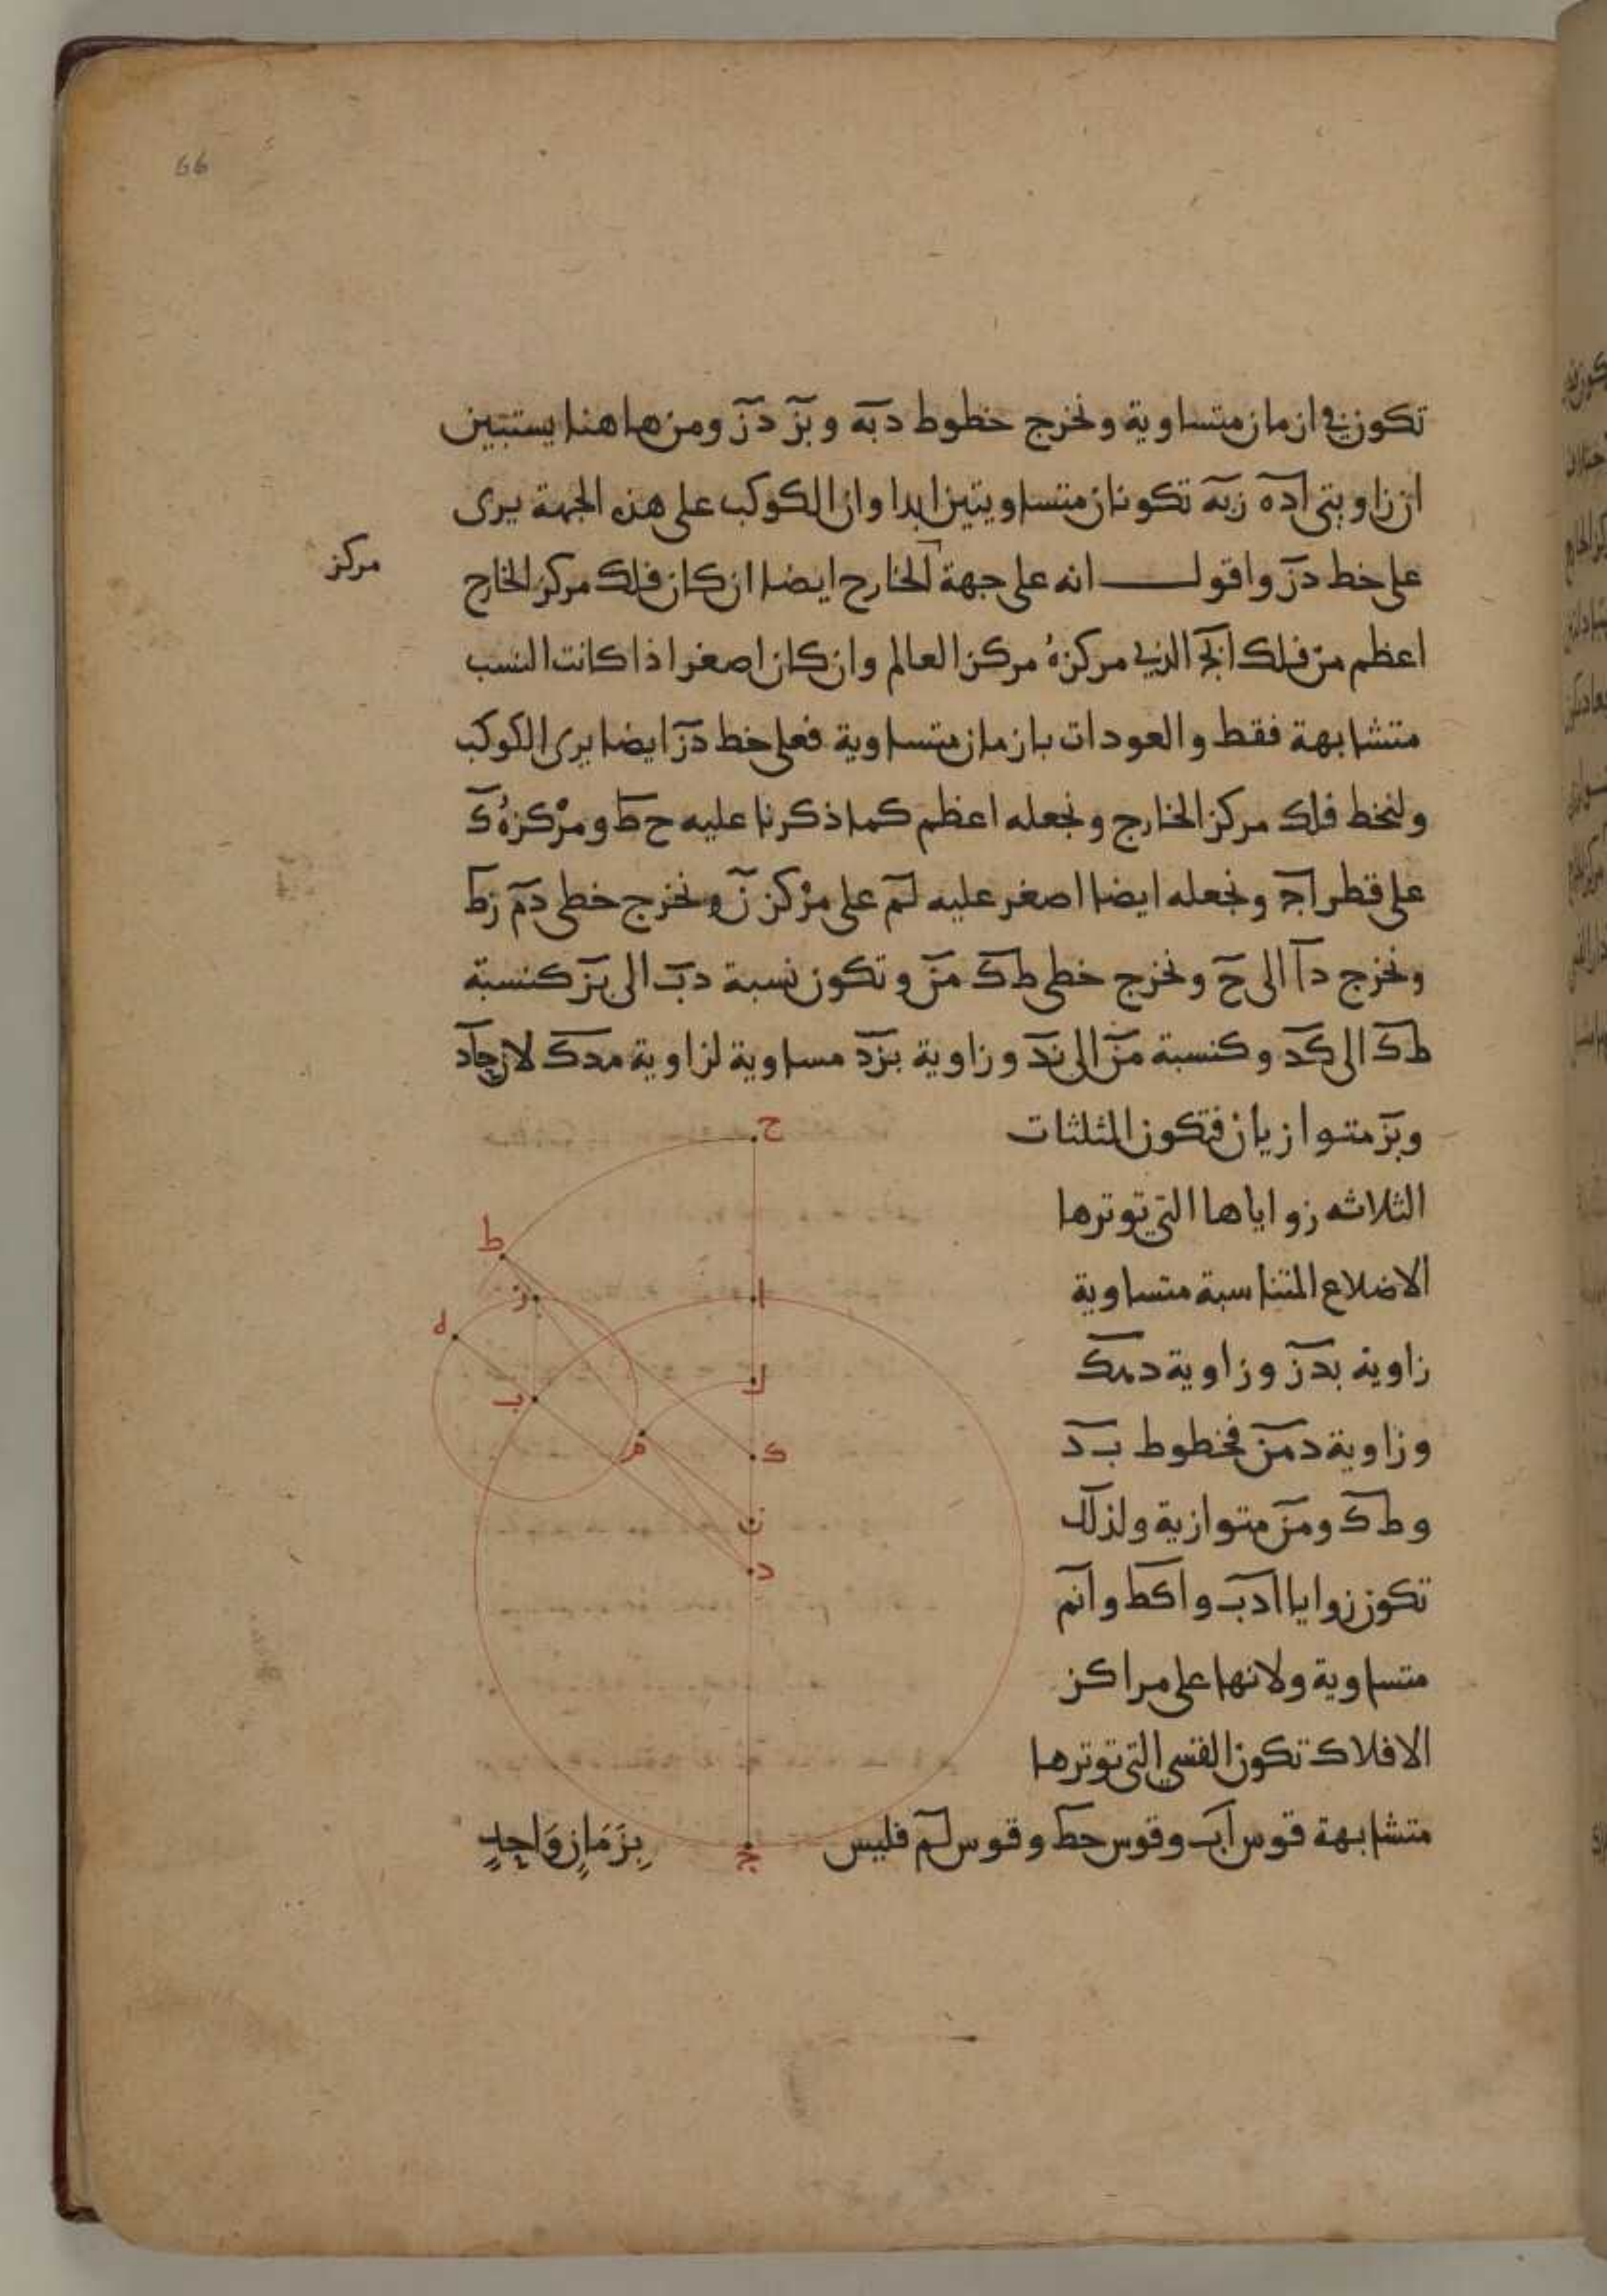 66
تكون في ازمان متساوية ونخرج خطوط دبه وبز دز ومن هاهنا يستبين
ان زاويتى اده زبه تكونان متساويتين ابدا وان الكوكب على هذه الجهة يرى
على خط دز واقول انه على جهة الخارج ايضا ان كان فلك مركز الخارج
مركز
اعظم من فلك ابج الذى مركزه مركز العالم وان كان اصغر اذا كانت النسب
متشابهة فقط والعودات بازمان متساوية فعلى خط دز ايضا يرى الكوكب
ولنخط فلك مركز الخارج ونجعله اعظم كما ذكرنا عليه ح ط ومركزه ك
على قطر اج ونجعله ايضا اصغر عليه لم على مركز ن ونخرج خطى دم زط
ونخرج دا الى ح ونخرج خطى ط ك من وتكون نسبة دب الى بز كنسبة
ط ك الى كد وكنسبة من الى ند وزاوية بزد مساوية لزاوية مدك لان جاد
وبز متوازيان فتكون المثلثات
الثلاثه زواياها التى توترها
الاضلاع المتناسبة متساوية
زاوية بدز وزاوية دمك
وزاوية دمن فخطوط ب د
وط ك ومن متوازية ولذلك
تكون زوايا ادب واكط وانم
متساوية ولانها على مراكز
الافلاك تكون القسى التى توترها
متشابهة قوس اب وقوس حط وقوس لم فليس بِزَمَانٍ وَاحِدٍ
ح
ط
ز
ه
ا
ب
ل
م
ك
ن
د
ج